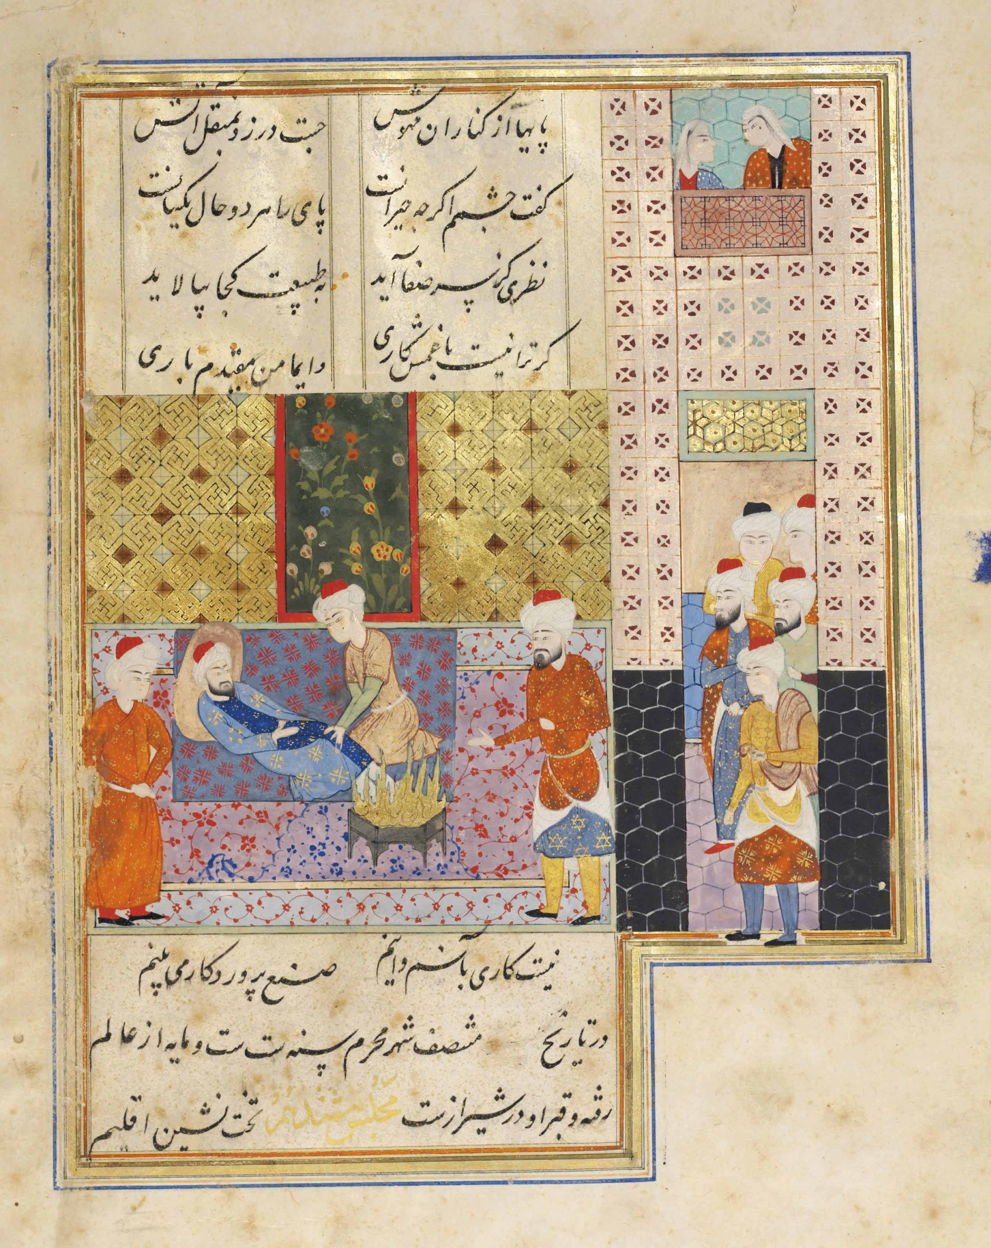 پایها از کنار آن مهوش جست در زد بمنقل آتش
گفت چشم اگرچه حیرانست پای را هر دو حال یکسانست
نظری کز سر صفا آید به طبیعت کجا بیالاید
گر ترا نیست با غمش کاری دایما من مقیدم باری
نیست کاری بآنم و اینم صنع پروردگار می بینم
در تاریخ منتصف شهر محرم سنه ست ست و مایه از عالم
رفته و قبر او در شیراز ست مجلس تخت نشین اقلیم